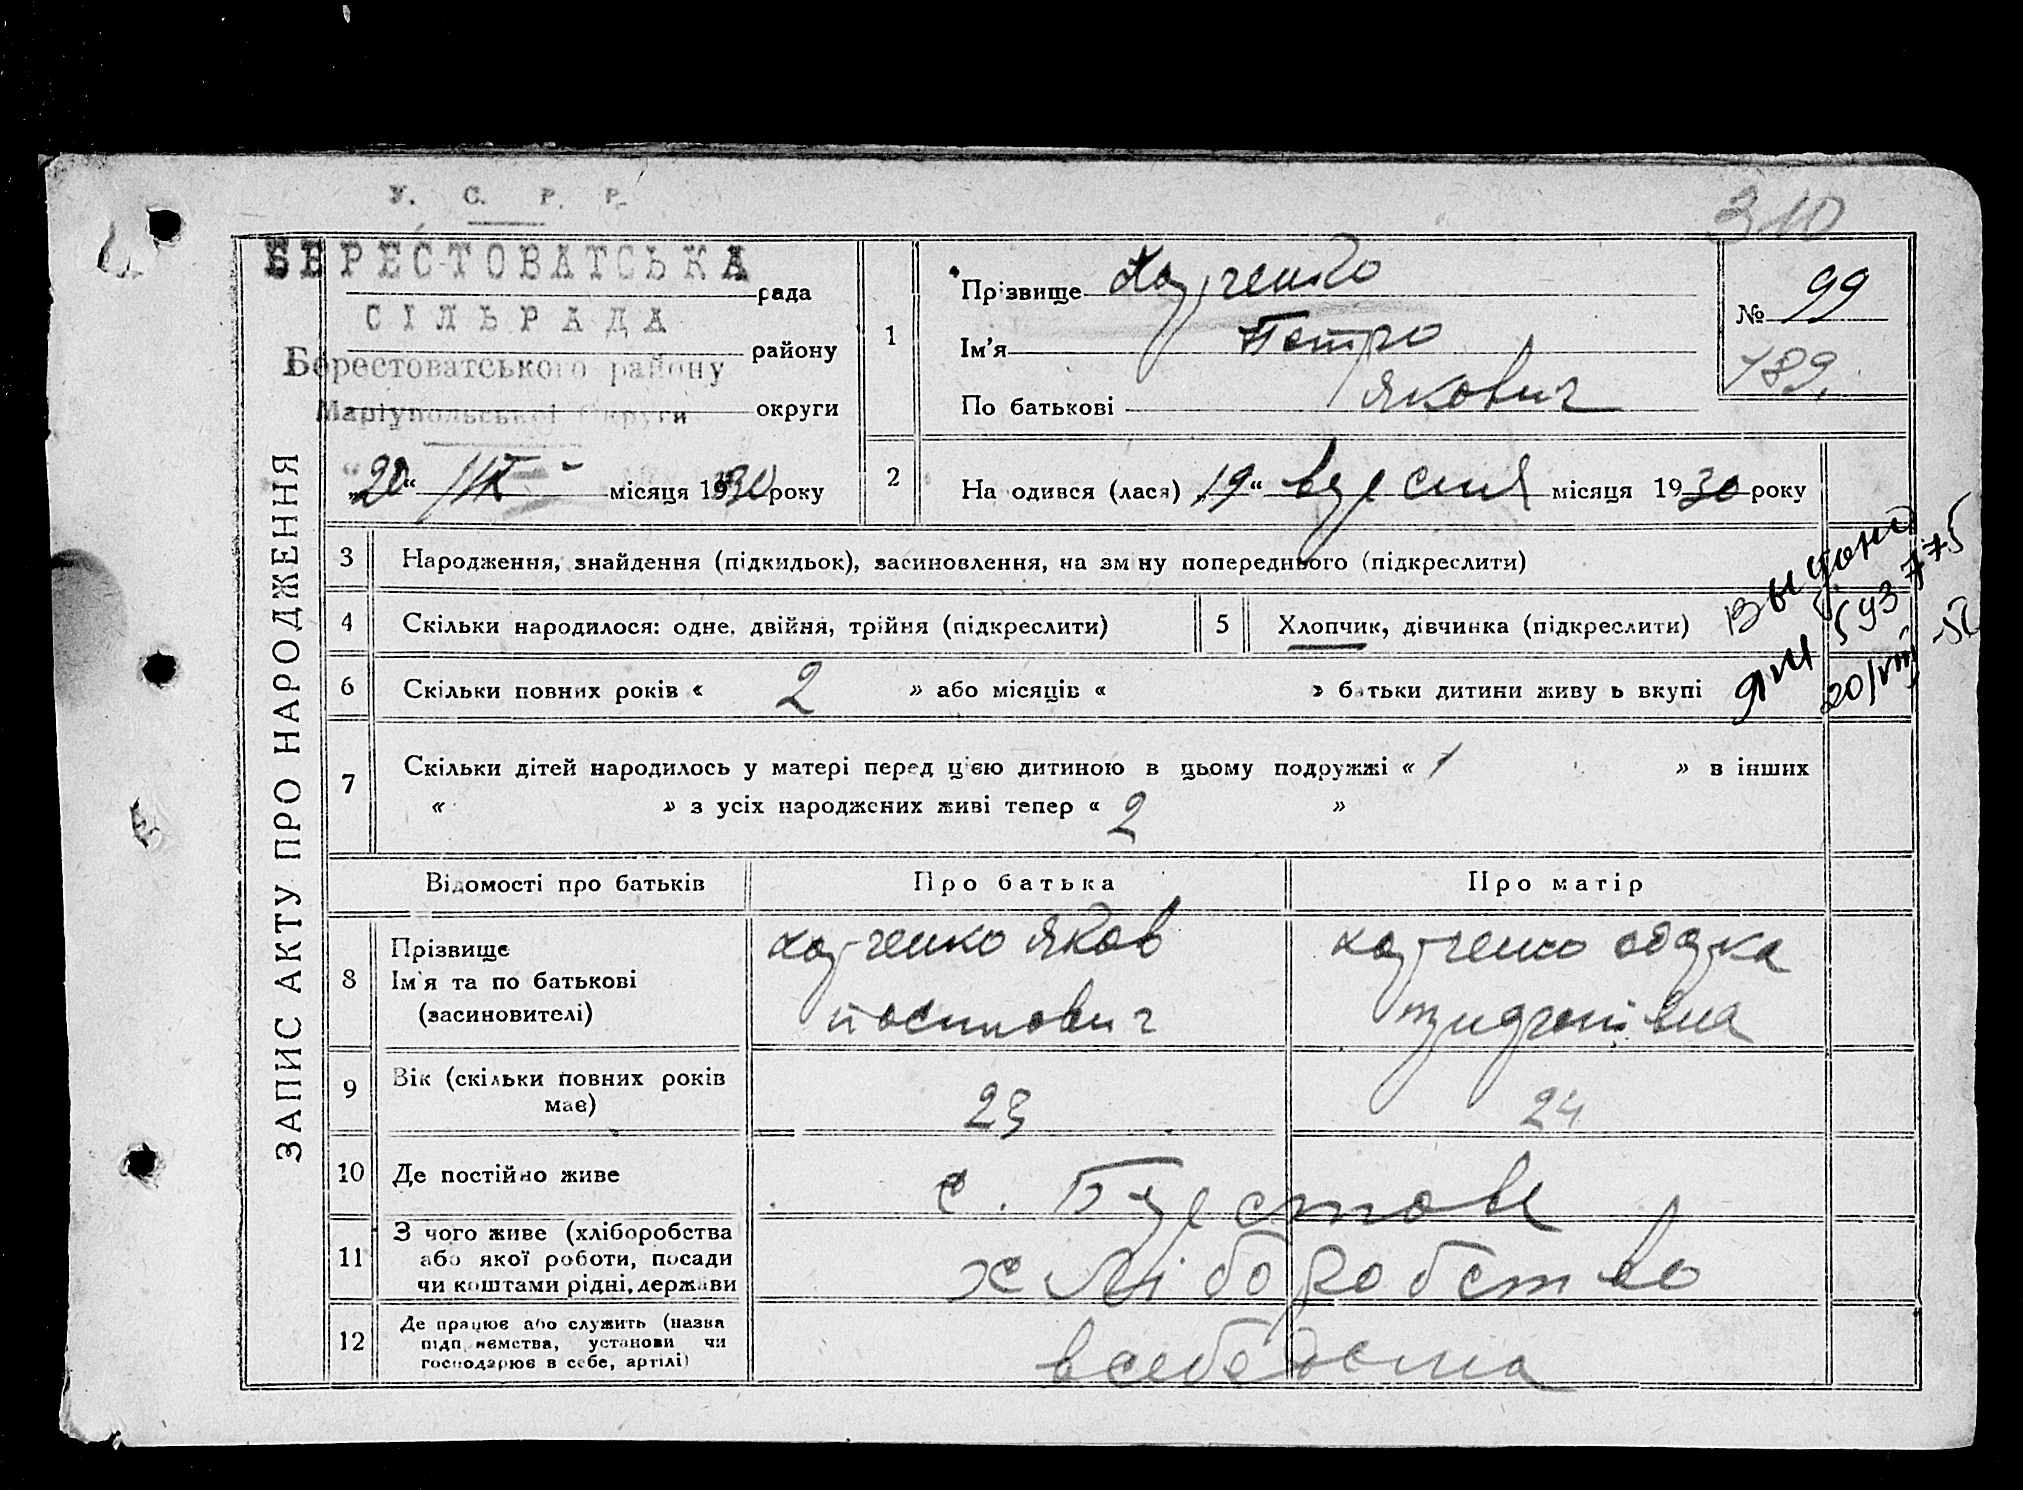 У. С. Р. Р.
310
БЕРЕСТОВАТСЬКА
рада
СІЛЬРАДА
району
Берестоватського району
Маріупольської Округи
округи
„20“ місяця 1930 року
1
Прізвище Харченко
Ім'я Петро
По батькові Якович
№ 99
189
2
На одився (лася) „19“ вересня місяця 1930 року
ЗАПИС АКТУ ПРО НАРОДЖЕННЯ
3 Народження, знайдення (підкидьок), засиновлення, на зм ну попереднього (підкреслити)
4 Скільки народилося: одне, двійня, трійня (підкреслити)
5 Хлопчик, дівчинка (підкреслити)
Выдано
ЯЩ 593775
20/VIII -52
6 Скільки повних років « 2 » або місяців « » батьки дитини живу ь вкупі
7 Скільки дітей народилось у матері перед цією дитиною в цьому подружжі « 1 » в інших
« » з усіх народжених живі тепер « 2 »
Відомості про батьків Про батька Про матір
8 Прізвище
Ім'я та по батькові
(засиновителі)
Харченко Яков
Харченко
9 Вік (скільки повних років
має)
23 24
10 Де постійно живе
с. Берестове
11 З чого живе (хліборобства
або якої роботи, посади
чи коштами рідні, держави
хліборобство
12 Де працює або служить (назва
підп иємства, установи чи
господарює в себе, артілі)
в себе